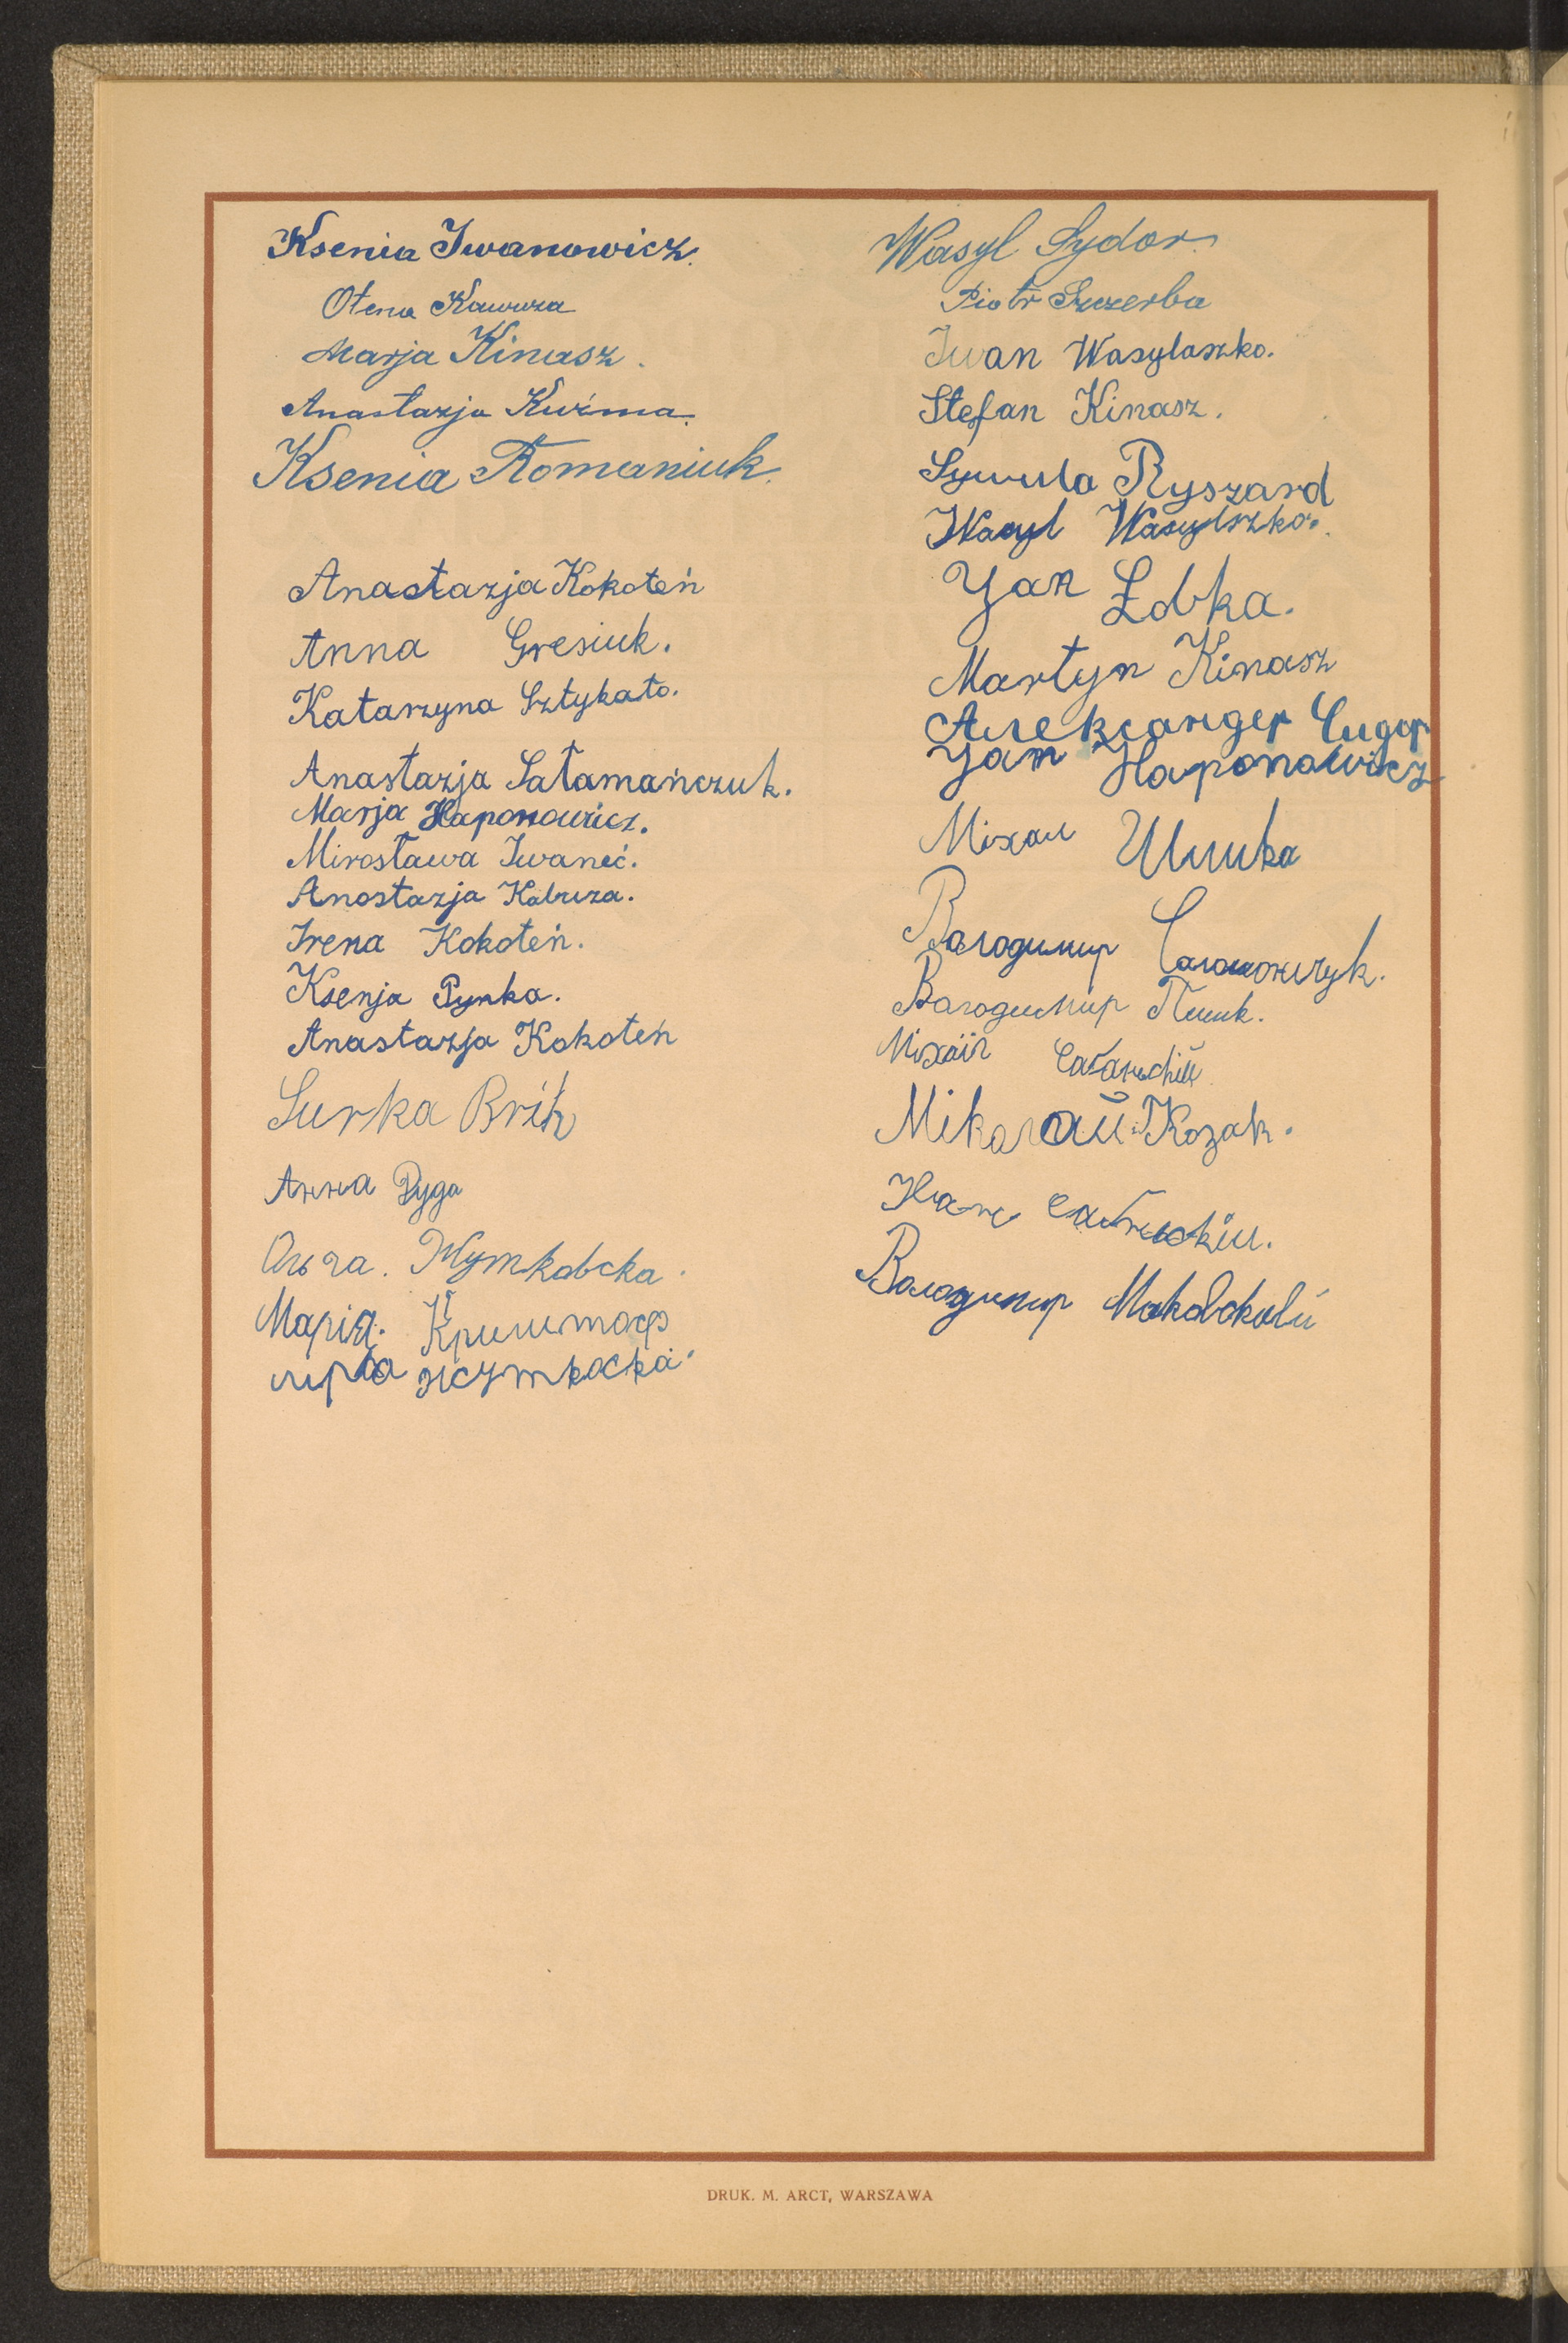 Ksenia Iwanowicz.
Ołena Kawuza
Marja Kinasz.
Anastazja Kuźma.
Ksenia Romaniuk.
Anastazja Kokoteń
Anna Gresiuk.
Katarzyna Sztykało.
Anastazja Sałamańczuk.
Marja Haponowicz.
Mirosława Iwaneć.
Anastazja
Irena Kokoteń.
Ksenja Pynka.
Anastazja Kokoteń
Surka Brik
Анна Дуда
Ольга. Жутковска.
Марія. Криштоф
Wasyl Sydor
Piotr Szczerba
Iwan Wasylaszko.
Stefan Kinasz.
Sywula Ryszard
Wasyl
Jan
Martyn Kinasz
Александер Сидор
Jan Haponowicz
Міхал
Володимир
Володимир
Міхайл
Mikолай Kozak.
Володимир
DRUK. M. ARCT, WARSZAWA